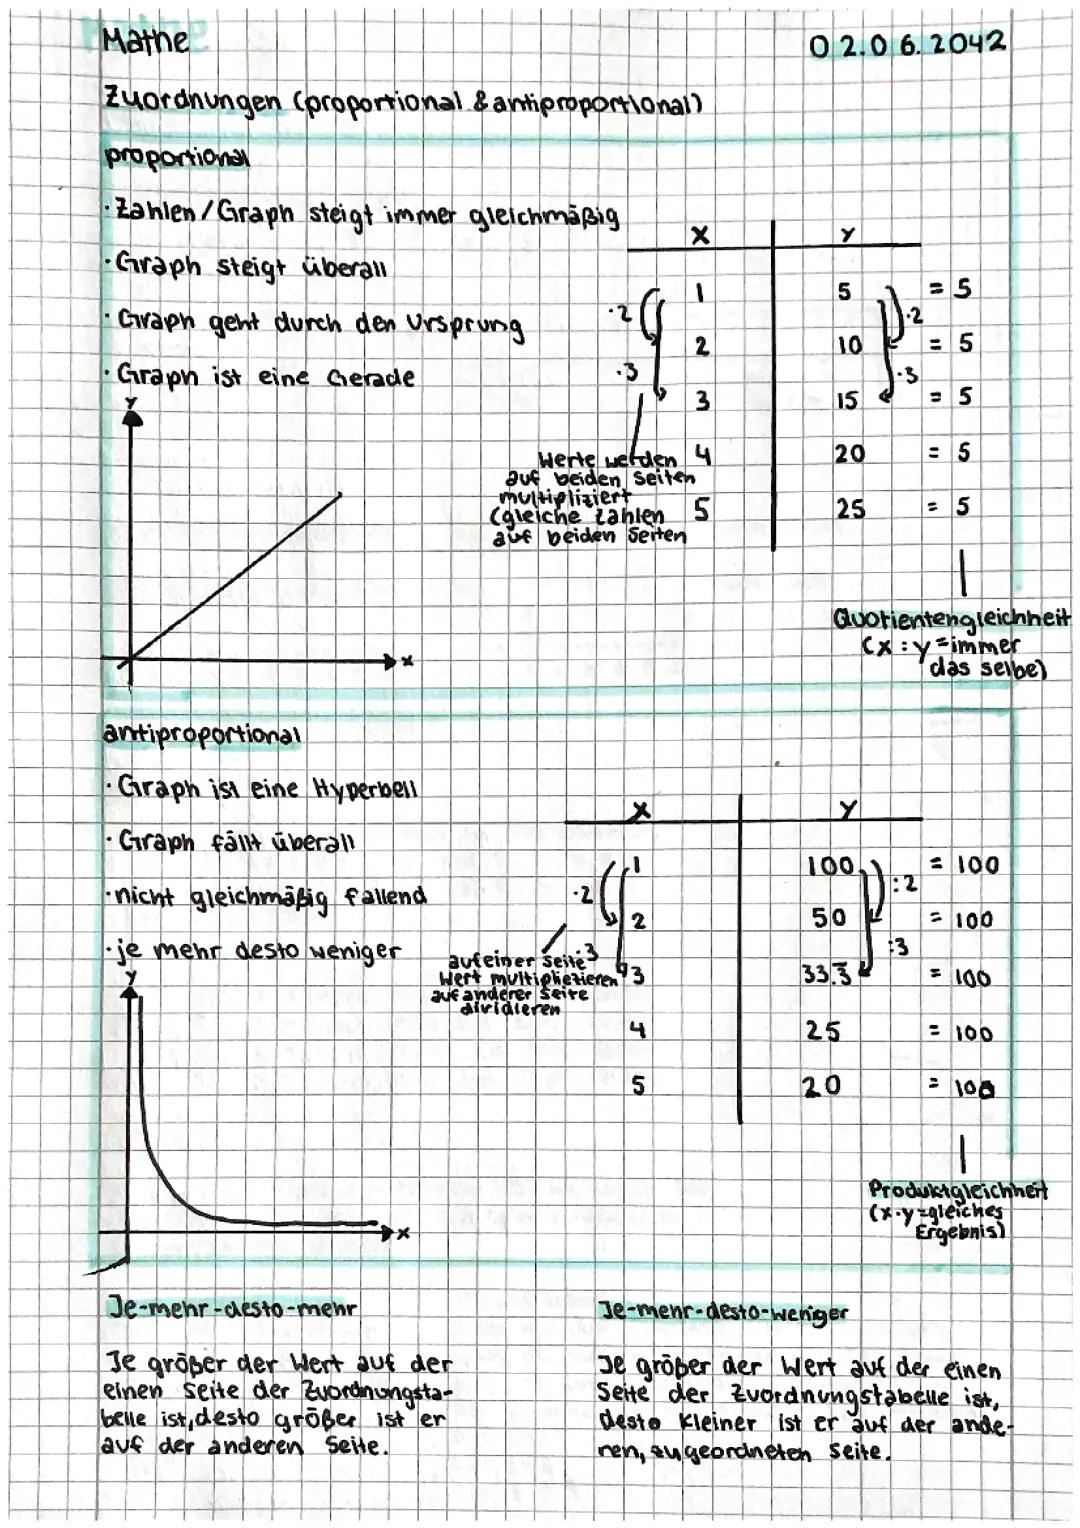 Mathe
02.06.2042
Zuordnungen (proportional & antiproportional)
proportional
· Zahlen/Graph steigt immer gleichmäßig
· Graph steigt überall
· Graph geht durch den Ursprung
· Graph ist eine Gerade
Y
x
X Y
1 5 = 5
2 10 = 5
3 15 = 5
4 20 = 5
5 25 = 5
·2
·3
·2
·3
Werte werden
auf beiden Seiten
multipliziert
(gleiche Zahlen
auf beiden Seiten
Quotientengleichheit
(x : y = immer
das selbe)
antiproportional
· Graph ist eine Hyperbell
· Graph fällt überall
· nicht gleichmäßig fallend
· je mehr desto weniger
Y
x
X Y
1 100 = 100
2 50 = 100
3 33.3̅ = 100
4 25 = 100
5 20 = 100
·2
·3
:2
:3
auf einer Seite
Wert multiplietieren
auf anderer Seite
dividieren
Produktgleichheit
(x·y = gleiches
Ergebnis)
Je-mehr-desto-mehr
Je größer der Wert auf der
einen Seite der Zuordnungsta-
belle ist, desto größer ist er
auf der anderen Seite.
Je-mehr-desto-weniger
Je größer der Wert auf der einen
Seite der Zuordnungstabelle ist,
desto kleiner ist er auf der ande-
ren, zugeordneten Seite.